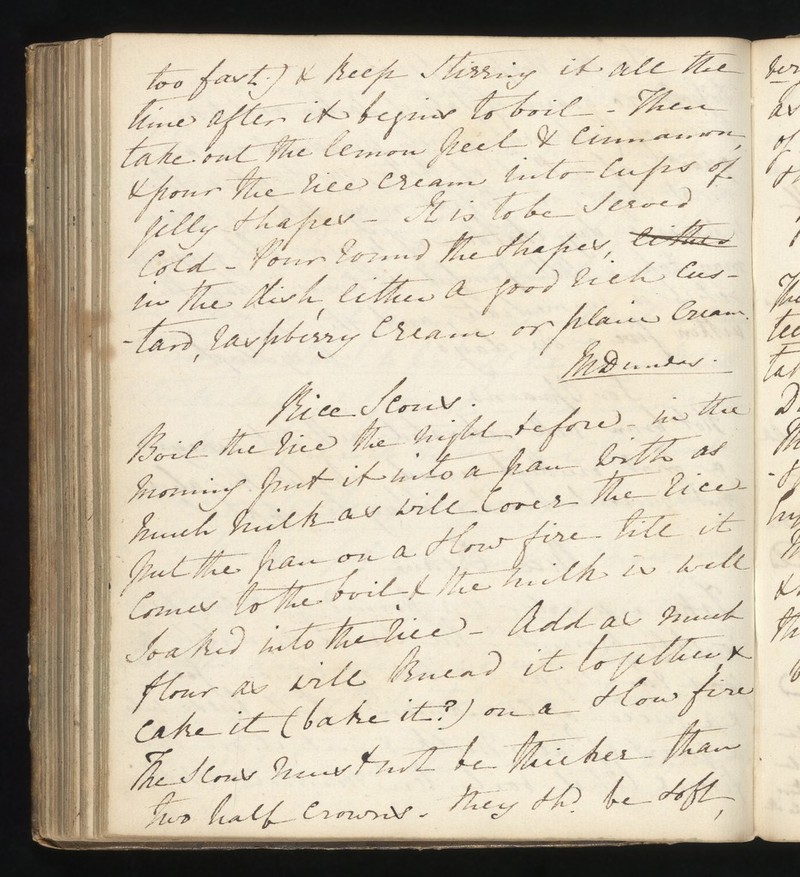 too fast.) & keep stirring it all the
time after it begins to boil - Then
take out the lemon peel & Cinnamon,
& pour the rice cream into Cups of
jilly shapes - It is to be served
Cold - Pour round the shapes, either
in the dish, either a good rich Cus-
-tard, raspberry Cream or plain Cream.
Dundas.
Rice Scons.
Boil the rice the night before - in the
morning put it into a pan with as
much milk as will cover the rice
put the pan on a slow fire till it
comes to the boil & the milk is well
soaked into the rice - Add as much
flour as will knead it together, &
cake it (bake it?) on a slow fire
The scons must not be thicker than
two half crowns. they shd. be soft,